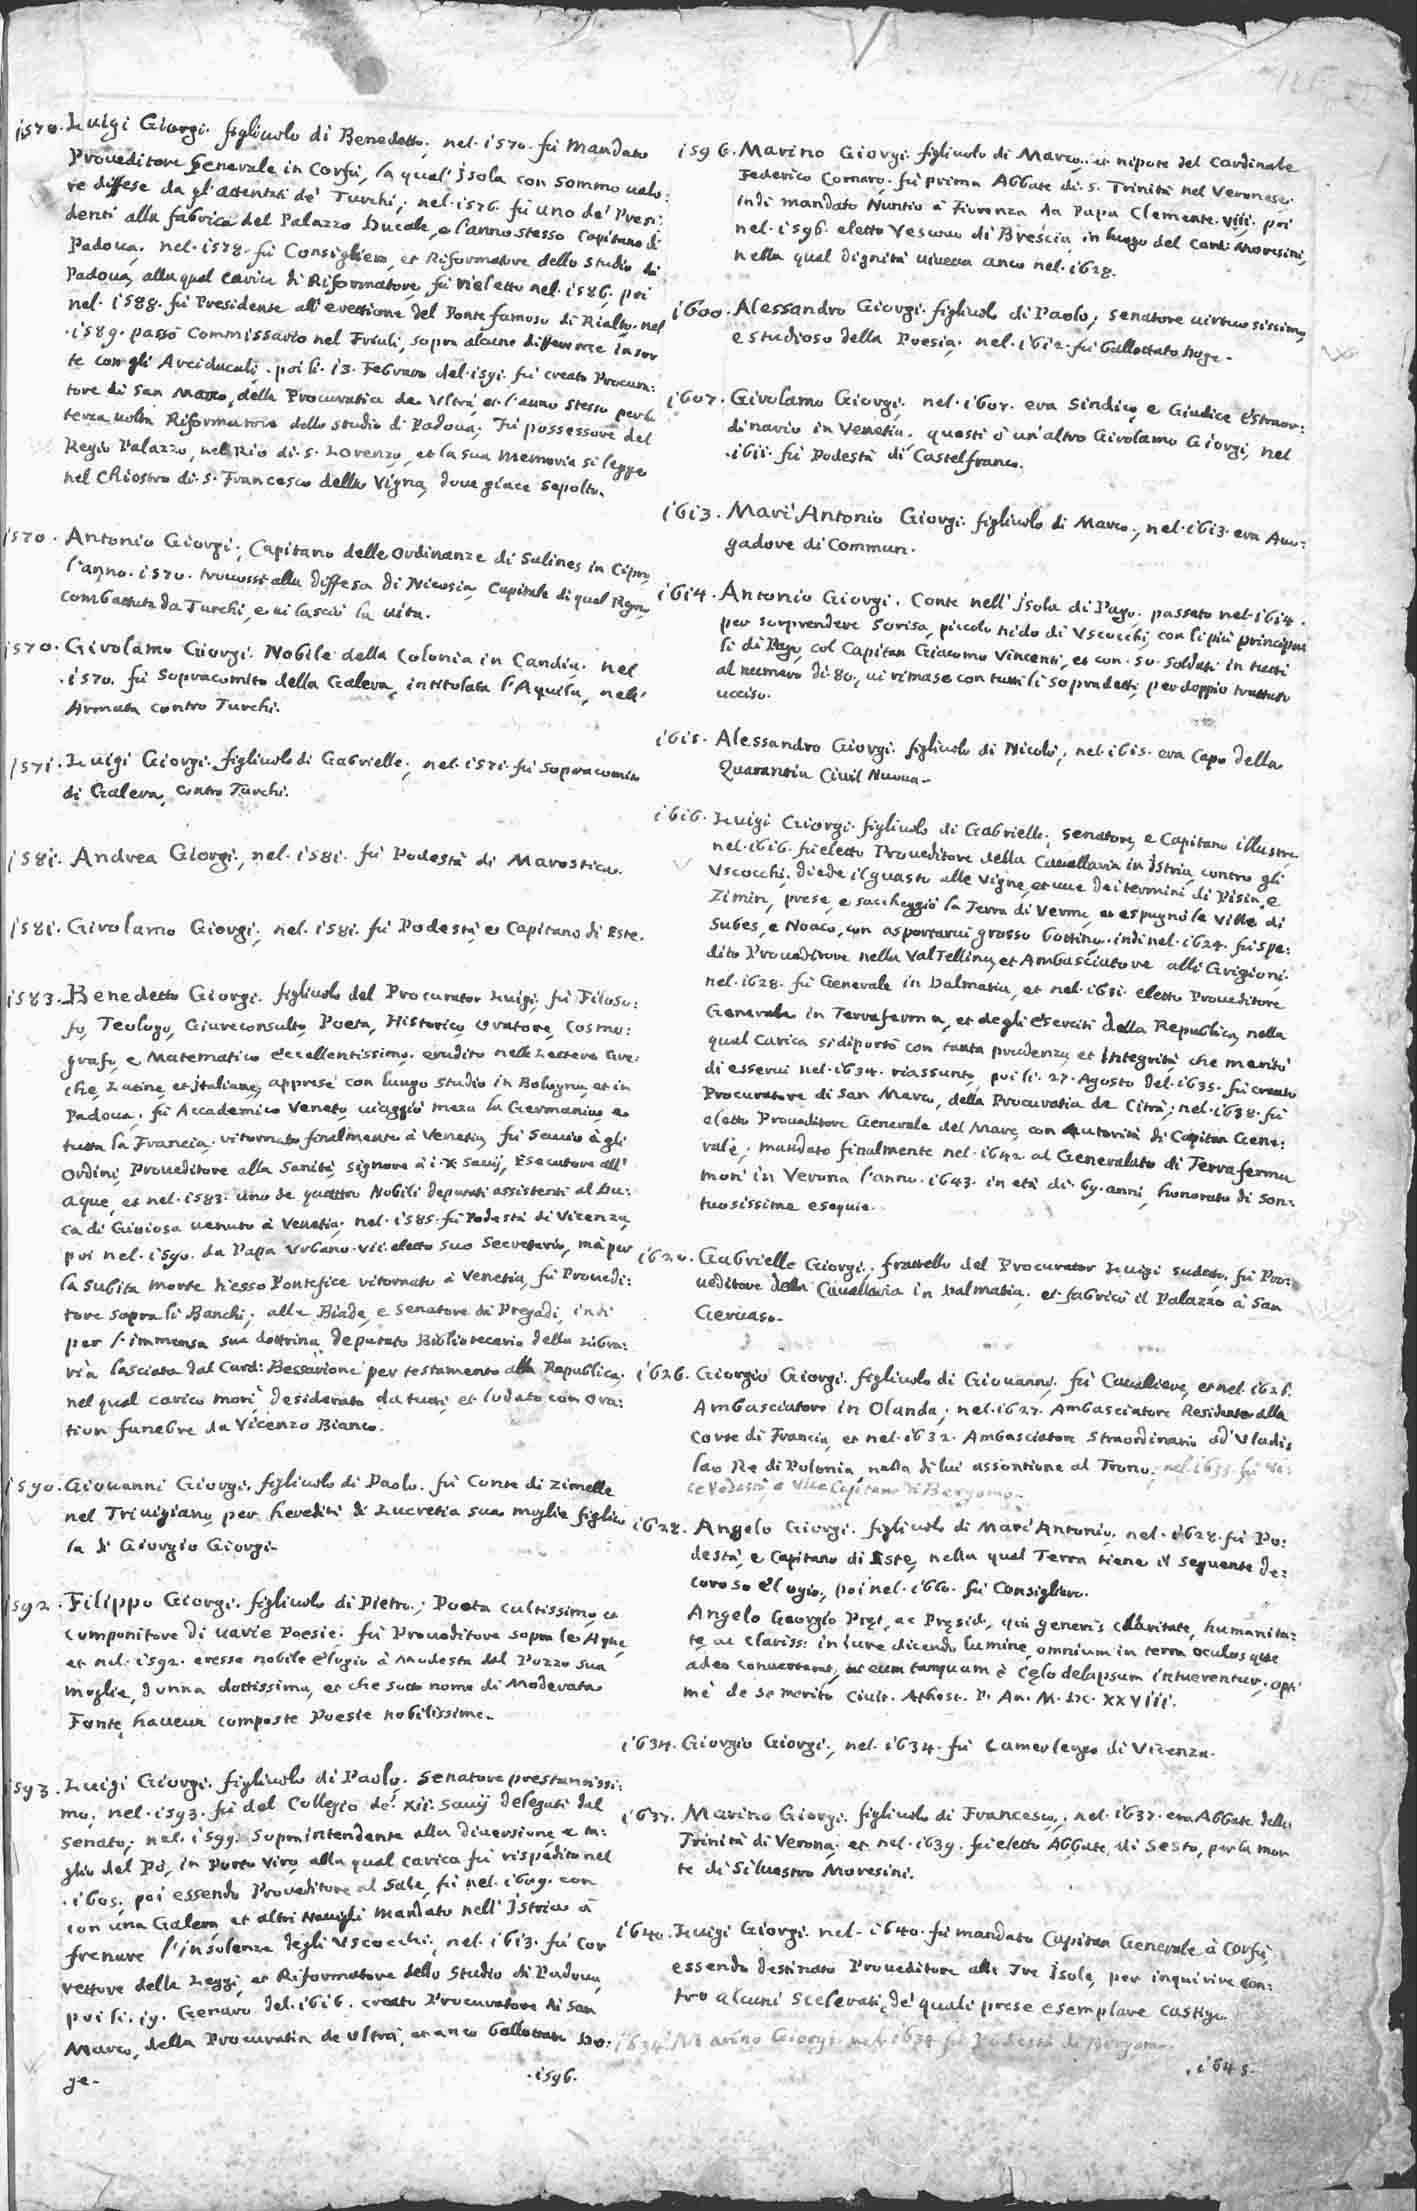 1570. Luigi Giorgi. figliuolo di Benedetto, nel. 1570. fù mandato
Proueditore Generale in Corfù, la qual' Isola con sommo ualo:
re diffese da gl'attentati de' Turchi; nel. 1576. fù uno de' Presi:
denti alla fabrica del Palazzo Ducale, e l'anno stesso Capitano di
Padoua; nel. 1578. fù Consigliero, et Riformatore dello Studio di
Padoua, alla qual carica di Riformatore, fù rieletto nel. 1586. poi
nel. 1588. fù Presidente all'erettione del Ponte famoso di Rialto. nel
.1589. passò Commissario nel Friuli, sopra alcune differenze insor
te con gli Arciducali. poi li. 13. Febraro del. 1591. fù creato Procura:
tore di San Marco, della Procuratia de Ultrà, et l'anno stesso per la
terza uolta Riformatore dello studio di Padoua; Fù possessore del
Regio Palazzo, nel Rio di. S. Lorenzo, et la sua memoria si legge
nel Chiostro di. S. Francesco della Vigna, doue giace sepolto.
1570. Antonio Giorgi; Capitano delle Ordinanze di Salines in Cipro
l'anno. 1570. trouossi alla diffesa di Nicosia, Capitale di quel Regno,
combattuta da Turchi, e ui lasciò la uita.
1570. Girolamo Giorgi. Nobile della Colonia in Candia; nel
.1570. fù Sopracomito della Galera, intitolata l'Aquila, nell'
Armata contro Turchi.
1571. Luigi Giorgi. figliuolo di Gabrielle, nel. 1571. fù sopracomito
di Galera, contro Turchi.
1581. Andrea Giorgi, nel. 1581. fù Podestà di Marostica.
1581. Girolamo Giorgi, nel. 1581. fù Podestà, et Capitano di Este.
1583. Benedetto Giorgi. figliuolo del Procurator Luigi, fù Filoso:
fo, Teologo, Giureconsulto, Poeta, Historico, Oratore, Cosmo:
grafo, e Matematico eccellentissimo. erudito nelle Lettere Gre:
che, Latine, et Italiane, apprese con lungo studio in Bologna, et in
Padoua. fù Accademico Veneto, uiaggiò meza la Germania, e
tutta la Francia. ritornato finalmente à Venetia, fù Sauio à gli
Ordini, Proueditore alla Sanità, Signore à i. X Sauij, Esecutore all'
Aque, et nel. 1583. uno de quattro Nobili deputati assistenti al Du:
ca di Gioiosa uenuto à Venetia. nel. 1585. fù Podestà di Vicenza,
poi nel. 1590. da Papa Urbano. VII. eletto suo Secretario, mà per
la subita morte d'esso Pontefice ritornato à Venetia, fù Proued:
tore sopra li Banchi, alle Biade, e Senatore di Pregadi, indi
per l'immensa sua dottrina, deputato Bibliotecario della Libra:
ria lasciata dal Card: Bessarione per testamento alla Republica,
nel qual carico morì desiderato da tutti, et lodato con ora:
tion funebre da Vicenzo Bianco.
1590. Giouanni Giorgi. figliuolo di Paolo. fù Conte di Zimelle
nel Triuigiano, per heredità di Lucretia sua moglie figliuo
la di Giorgio Giorgi.
1592. Filippo Giorgi. figliuolo di Pietro; Poeta cultissimo, et
componitore di uarie Poesie. fù Proueditore sopra le Aque,
et nel. 1592. eresse nobile elogio à Modesta dal Pozzo sua
moglie, donna dottissima, et che sotto nome di Moderata
Fonte, haueua composte Poesie nobilissime.
1593. Luigi Giorgi. figliuolo di Paolo. Senatore prestantissi:
mo, nel. 1593. fù del Collegio de'. XII. Sauij delegati dal
Senato; nel. 1599. Sopraintendente alla diuersione e ta:
glio del Pò, in Porto Viro, alla qual carica fù rispedito nel
.1605. poi essendo Proueditore al Sale, fù nel. 1609. con
con una Galera, et altri Nauigli mandato nell'Istria à
frenare l'insolenza degli Uscocchi. nel. 1613. fù Cor
rettore delle Leggi, et Riformatore dello Studio di Padoua,
poi li. 19. Genaro del. 1616. creato Procuratore di San
Marco, della Procuratia de Ultrà, et anco ballottato Do:
ge.
.1596.
1596. Marino Giorgi. figliuolo di Marco, et nipote del Cardinale
Federico Cornaro. fù prima Abbate di. S. Trinità nel Veronese,
indi mandato Nuntio à Fiorenza da Papa Clemente. VIII. poi
nel. 1596. eletto Vescouo di Brescia, in luogo del Card: Moresini,
nella qual dignità uiueua anco nel. 1628.
1600. Alessandro Giorgi. figliuolo di Paolo; senatore uirtuosissimo,
e studioso della Poesia. nel. 1612. fù ballottato Doge.
1607. Girolamo Giorgi, nel. 1607. era Sindico, e Giudice Estraor:
dinario in Venetia. questi ò un'altro Girolamo Giorgi, nel
.1611. fù Podestà di Castelfranco.
1613. Marc'Antonio Giorgi. figliuolo di Marco, nel. 1613. era Auo:
gadore di Commun.
1614. Antonio Giorgi. Conte nell'Isola di Pago. passato nel. 1614.
per sorprendere Scrisa, piccolo nido di Uscocchi, con li più principa
li di Pago, col Capitan Giacomo Vincenti, et con. 50. soldati in tutti
al numero di. 80. ui rimase con tutti li sopradetti, per doppio trattato
ucciso.
1615. Alessandro Giorgi. figliuolo di Nicolò, nel. 1615. era Capo della
Quarantia Ciuil Nuoua.
1616. Luigi Giorgi. figliuolo di Gabrielle. senatore, e Capitano illustre.
nel. 1616. fù eletto Proueditore della Cauallaria in Istria, contro gli
Uscocchi. diede il guasto alle Vigne, et uue dei termini di Pisin, e
Zimin, prese, e saccheggiò la Terra di Vermè, et espugnò le Ville di
Subes, e Noaco, con asportarui grosso bottino. indi nel. 1624. fù spe:
dito Proueditore nella ValTellina, et Ambasciatore alli Grigioni.
nel. 1628. fù Generale in Dalmatia, et nel. 1631. eletto Proueditore
Generale in Terraferma, et degli Eserciti della Republica, nella
qual carica si diportò con tanta prudenza, et integrità, che meritò
di esserui nel. 1634. riassunto, poi li. 27. Agosto del. 1635. fù creato
Procuratore di San Marco, della Procuratia de Citrà; nel. 1638. fù
eletto Proueditore Generale del Mare, con autorità di Capitan Gene:
rale; mandato finalmente nel. 1642. al Generalato di Terraferma
morì in Verona l'anno. 1643. in età di. 69. anni, honorato di son:
tuosissime esequie.
1620. Gabrielle Giorgi. frattello del Procurator Luigi sudetto, fù Pro:
ueditore della Cauallaria in Dalmatia. et fabricò il Palazzo à San
Geruaso.
1626. Giorgio Giorgi. figliuolo di Giouanni. fù Caualiere, et nel. 1626.
Ambasciatore in Olanda; nel. 1627. Ambasciatore Residente alla
Corte di Francia, et nel. 1632. Ambasciatore Straordinario ad Vladis
lao Re di Polonia, nella di lui assontione al Trono. nel. 1635. fù Vi:
ce Podestà, e Vice Capitano di Bergomo.
1628. Angelo Giorgi. figliuolo di Marc'Antonio, nel. 1628. fù Po:
destà, e Capitano di Este, nella qual Terra tiene il seguente de:
coroso Elogio, poi nel. 1660. fù Consigliero.
Angelo Georgio Pręt, ac Pręsid, qui generis claritate, humanita:
te, ac clariss: in iure dicendo lumine, omnium in terra oculos que
adeo conuerterat, ut eum tanquam è cęlo delapsum intuerentur, opti
mè de se merito Ciuit. Athest. P. An. M. DC. XXVIII.
1634. Giorgio Giorgi, nel. 1634. fù Camerlengo di Vicenza.
1637. Marino Giorgi. figliuolo di Francesco, nel. 1637. era Abbate della
Trinità di Verona, et nel. 1639. fù eletto Abbate, di Sesto, per la mor
te di Siluestro Moresini.
1640. Luigi Giorgi. nel. 1640. fù mandato Capitan Generale à Corfù,
essendo destinato Proueditore alle Tre Isole, per inquirire con:
tro alcuni scelerati, de' quali prese esemplare castigo.
1634. Marino Giorgi. nel. 1634 fù Podestà di Bergomo.
.1645.